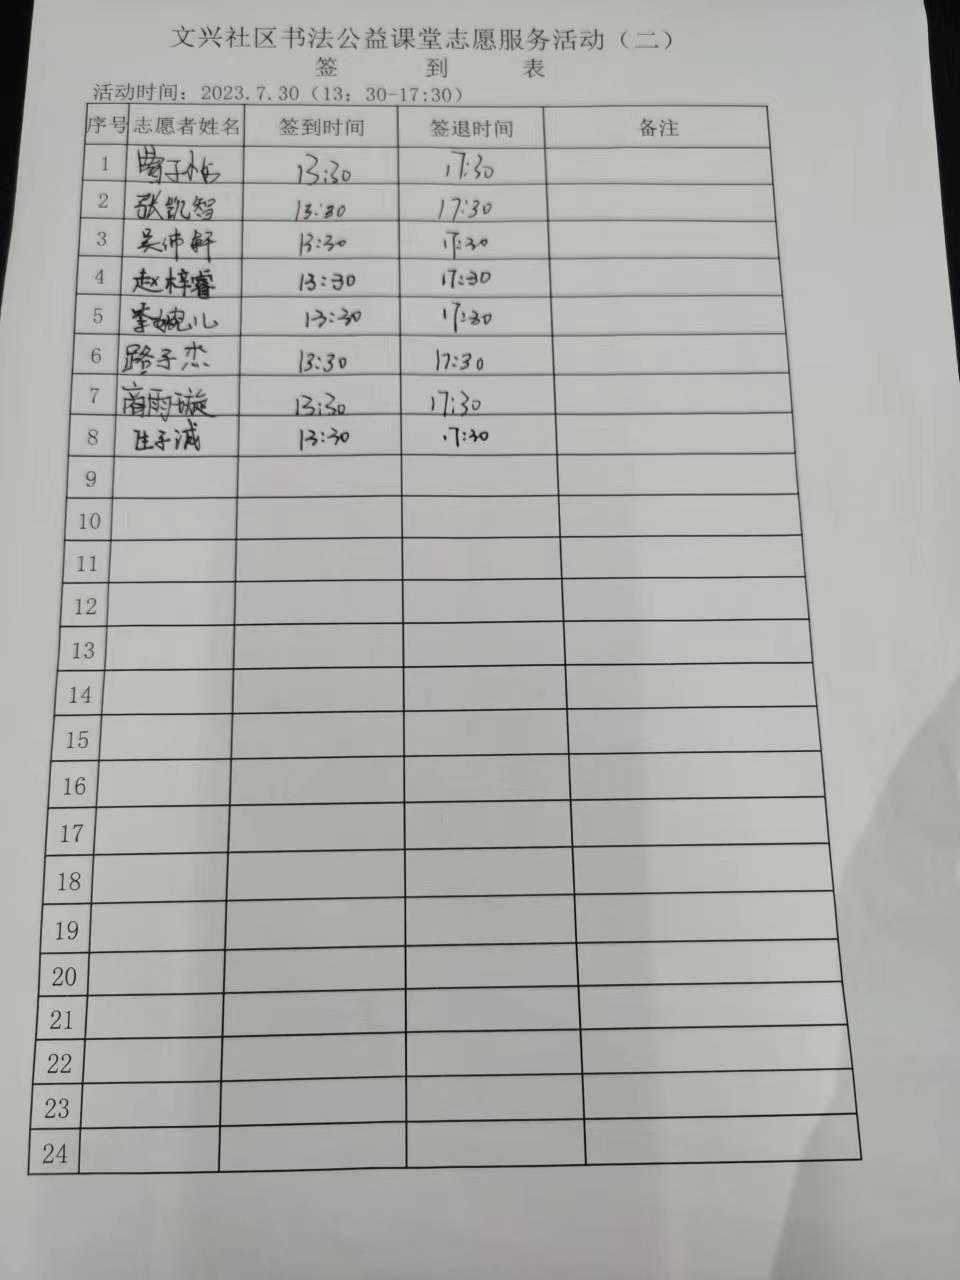 文兴社区书法公益课堂志愿服务活动（二）
签 到 表
活动时间：2023.7.30（13：30-17:30）
序号 志愿者姓名 签到时间 签退时间 备注
1 13:30 17:30
2 张凯智 13:30 17:30
3 吴沛轩 13:30 17:30
4 赵梓睿 13:30 17:30
5 李婉儿 13:30 17:30
6 路子杰 13:30 17:30
7 商雨璇 13:30 17:30
8 13:30 17:30
9
10
11
12
13
14
15
16
17
18
19
20
21
22
23
24